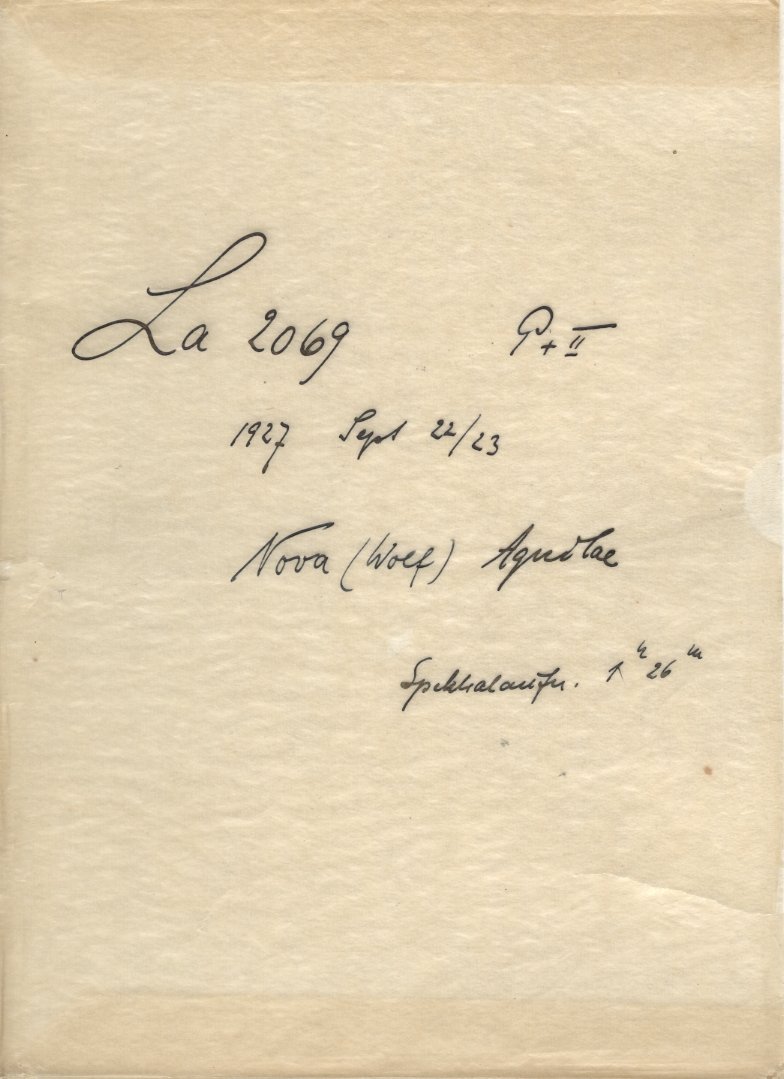 La 2069 P + II
1927 Sept 22/23
Nova (Wolf) Aquilae
Spektralaufn. 1ʰ 26ᵐ